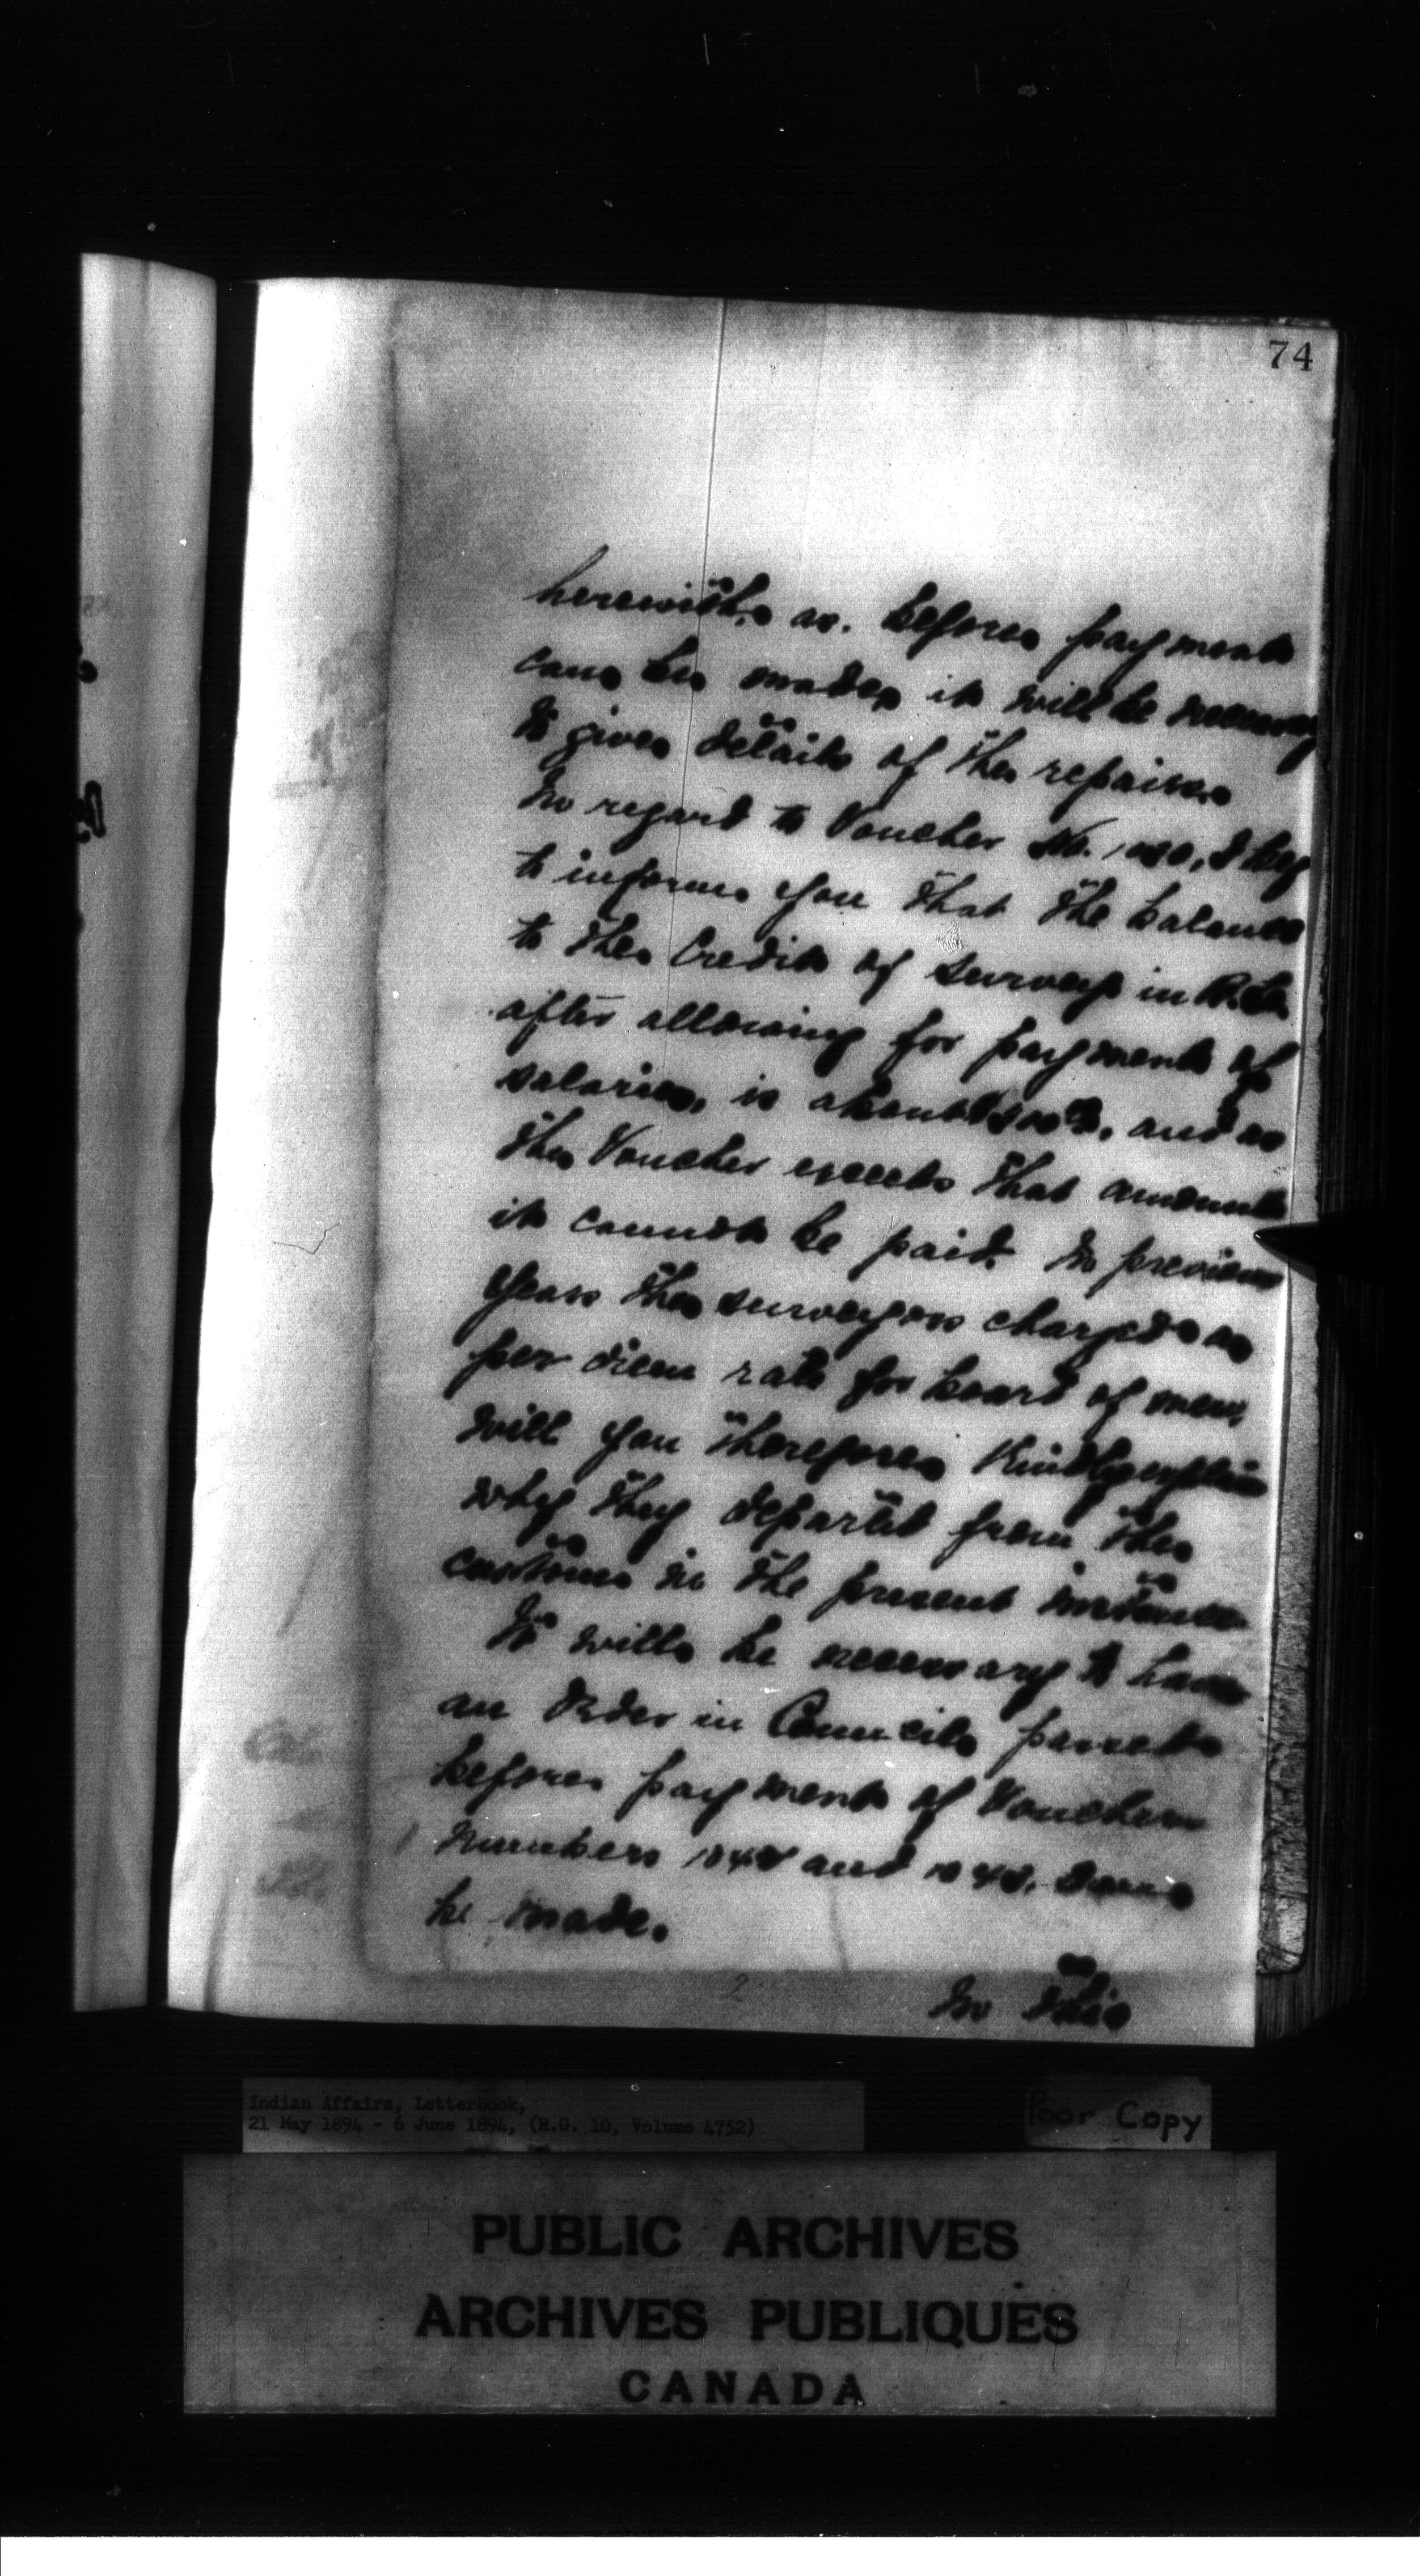 74
herewith, as before payment
can be made, it will be necessary
to give details of the repairs.
In regard to Voucher No. , I beg
to inform you that the balance
to the Credit of Surveys in B.C.
after allowing for payment of
salaries, is about , and as
the Voucher exceeds that amount
it cannot be paid. In previous
years the surveyors charged a
per diem rate for board of men,
will you therefore kindly explain
why they depart from the
custom in the present instance
It will be necessary to have
an Order in Council passed
before payment of Vouchers
Numbers and can
be made.
In this
Indian Affairs, Letterbook,
21 May 1894 - 6 June 1894, (R.G. 10, Volume 4752)
Poor Copy
PUBLIC ARCHIVES
ARCHIVES PUBLIQUES
CANADA